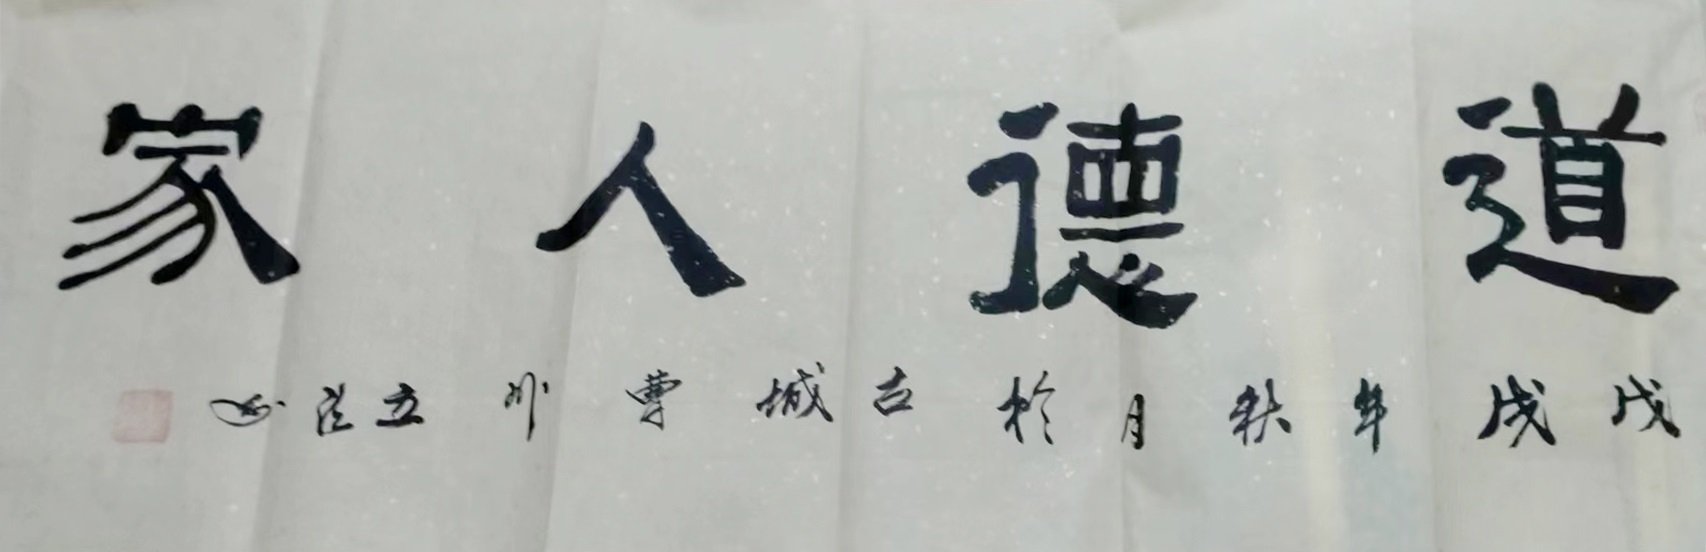 道德人家
戊戌年秋月於古城曹州立注书